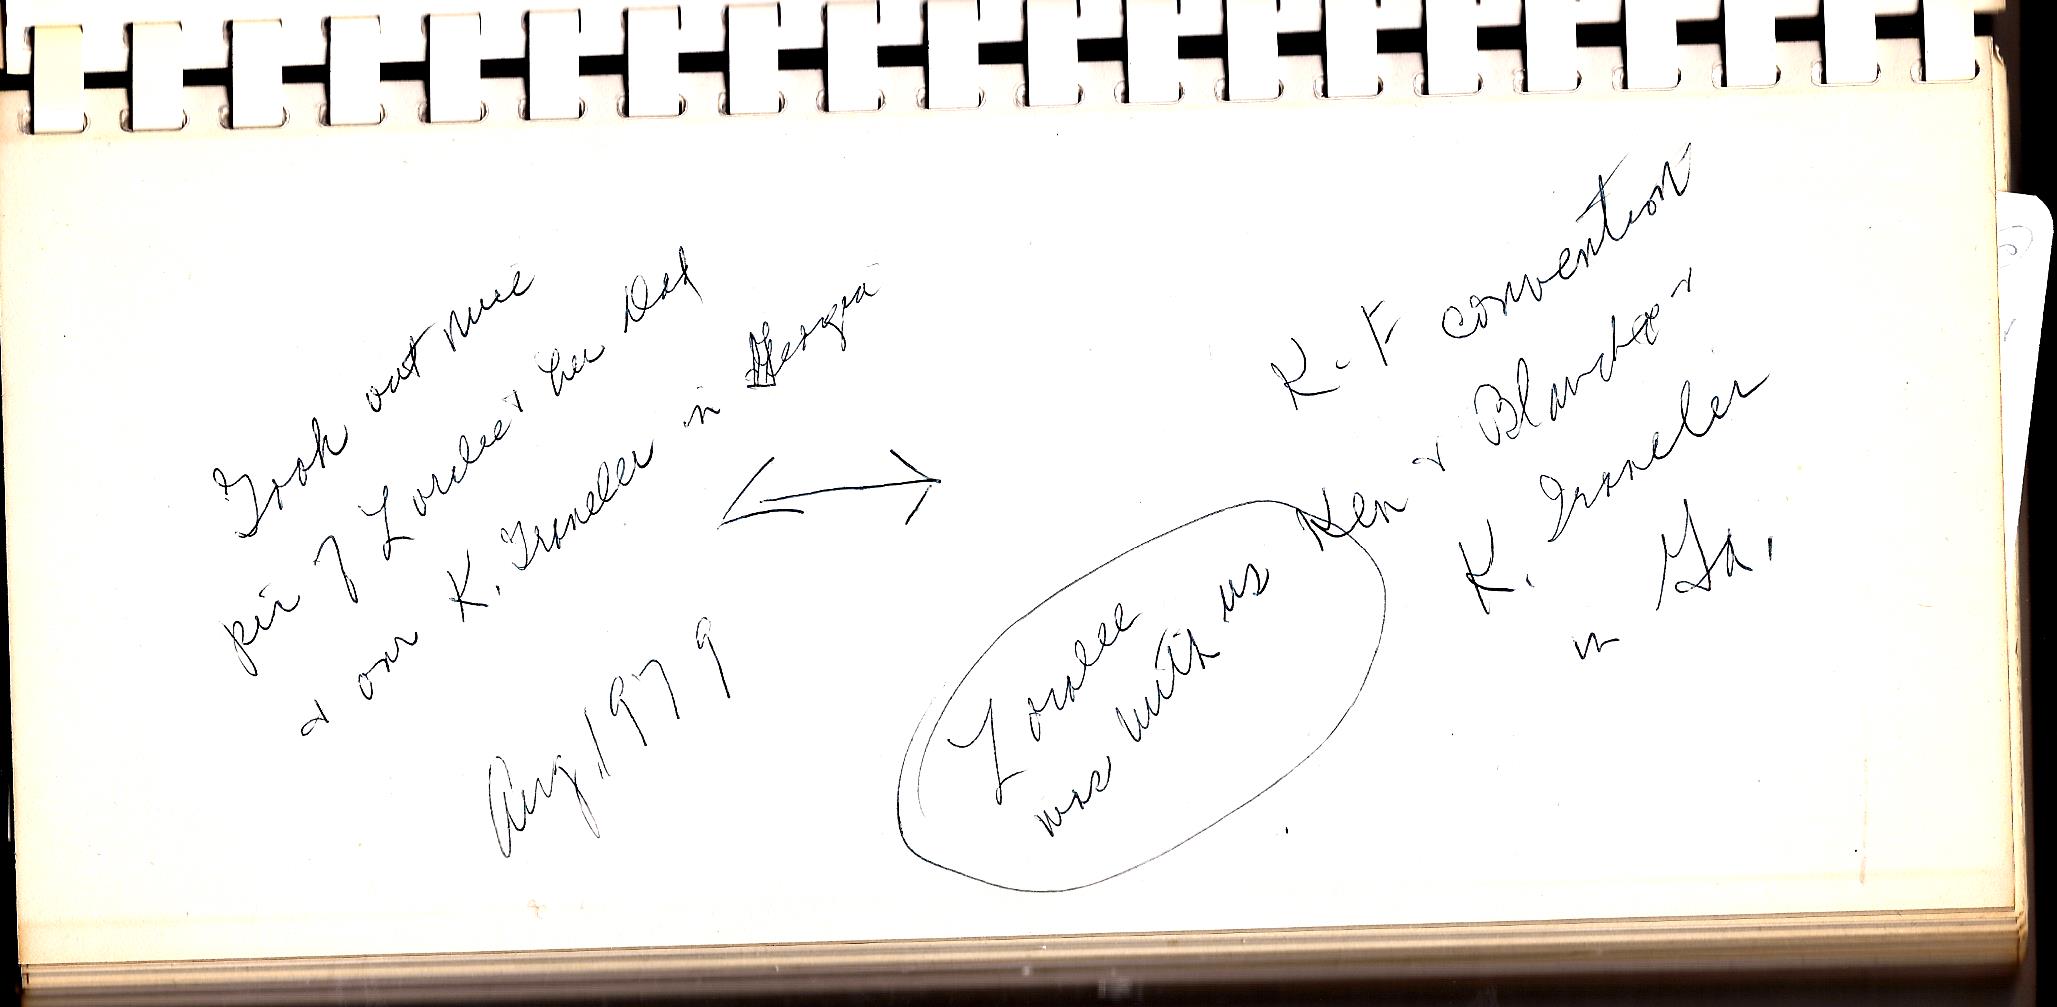 Took out nice
pic of Loralee & her Dad
& our K. Traveler in Georgia
Aug, 1979
K. F convention
Ken & Blanche &
K. Traveler
in Ga.
Loralee
was with us